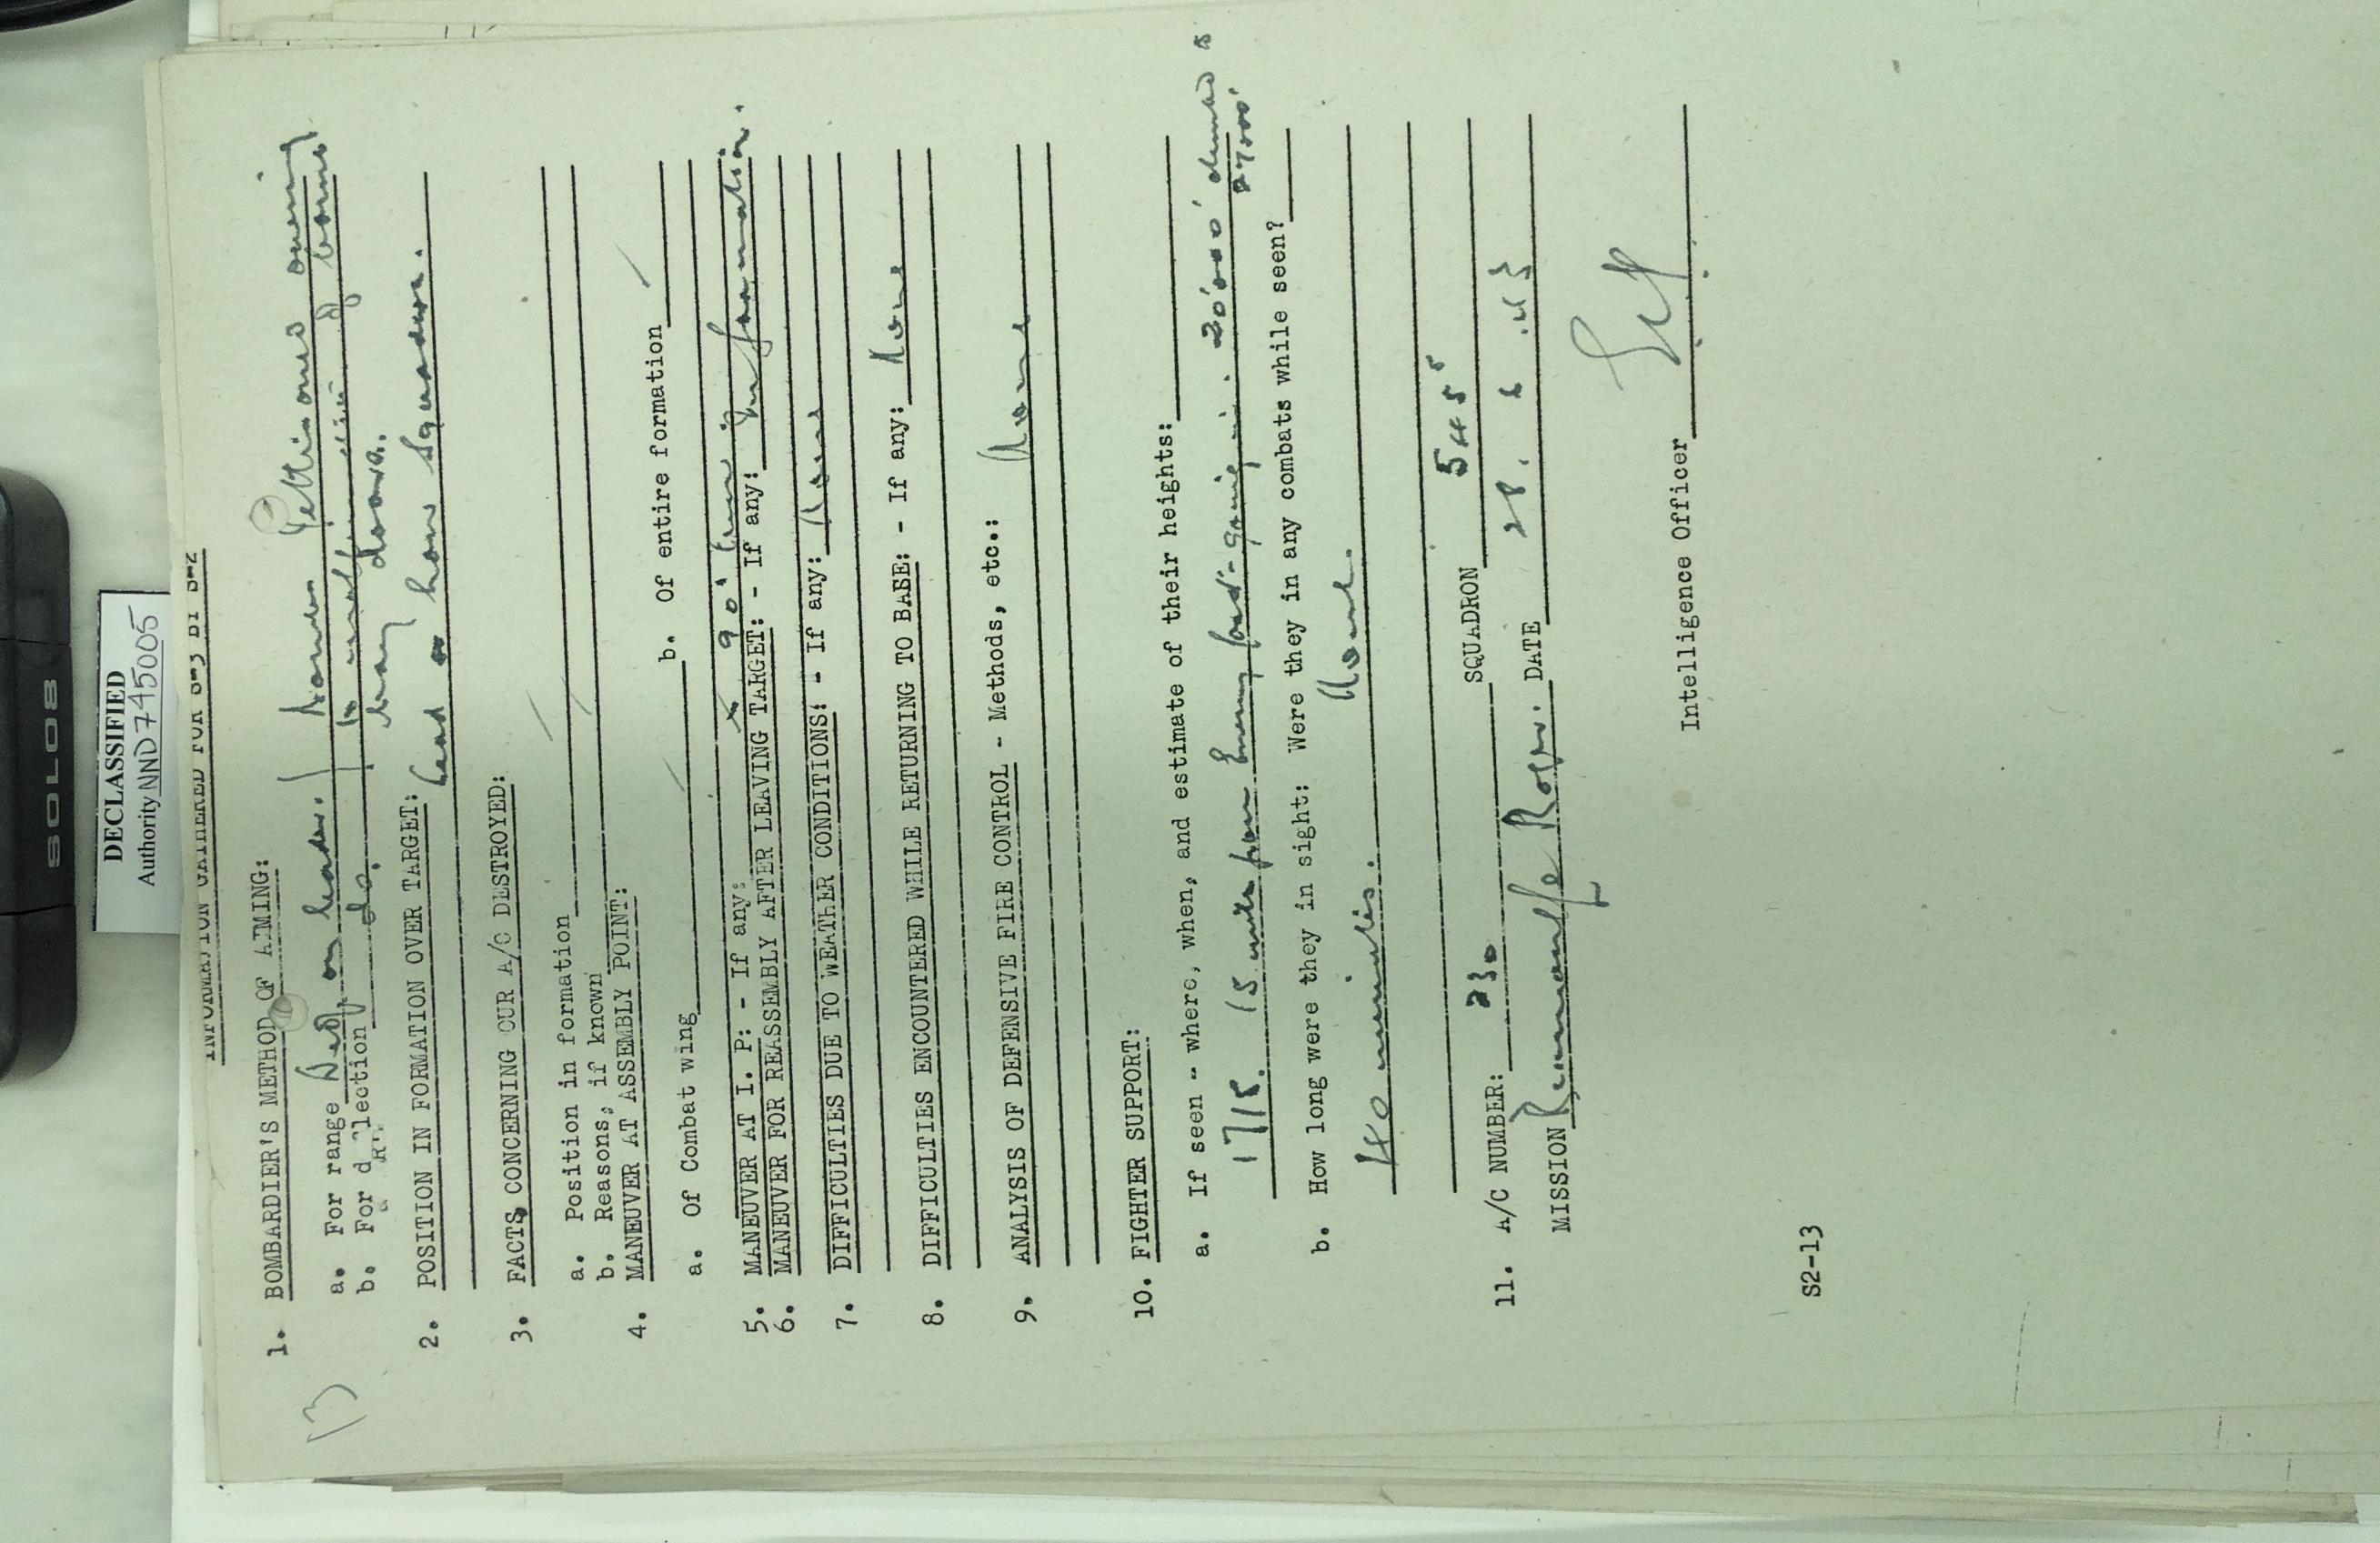 SOLO8
DECLASSIFIED
Authority NND 745005
INFORMATION GATHERED FOR S-3 BY S-2
13
1. BOMBARDIER'S METHOD OF AIMING:
a. For range on leader.
b. For d lection do.
to of bombs
bay doors.
2. POSITION IN FORMATION OVER TARGET: Lead low Squadron.
3. FACTS CONCERNING OUR A/C DESTROYED:
a. Position in formation
b. Reasons, if known
4. MANEUVER AT ASSEMBLY POINT:
a. Of Combat wing b. Of entire formation
5. MANEUVER AT I. P: - If any: x 90° turn
6. MANEUVER FOR REASSEMBLY AFTER LEAVING TARGET: - If any: In formation.
7. DIFFICULTIES DUE TO WEATHER CONDITIONS: - If any: None
8. DIFFICULTIES ENCOUNTERED WHILE RETURNING TO BASE: - If any: None
9. ANALYSIS OF DEFENSIVE FIRE CONTROL - Methods, etc.: None
10. FIGHTER SUPPORT:
a. If seen -- where, when, and estimate of their heights:
1715. 15 miles from Enemy coast - going in. 20'000'
27000'
b. How long were they in sight: Were they in any combats while seen?
40 minutes. None.
11. A/C NUMBER: 230 SQUADRON 545
MISSION DATE 28. 6.43
Intelligence Officer
S2-13